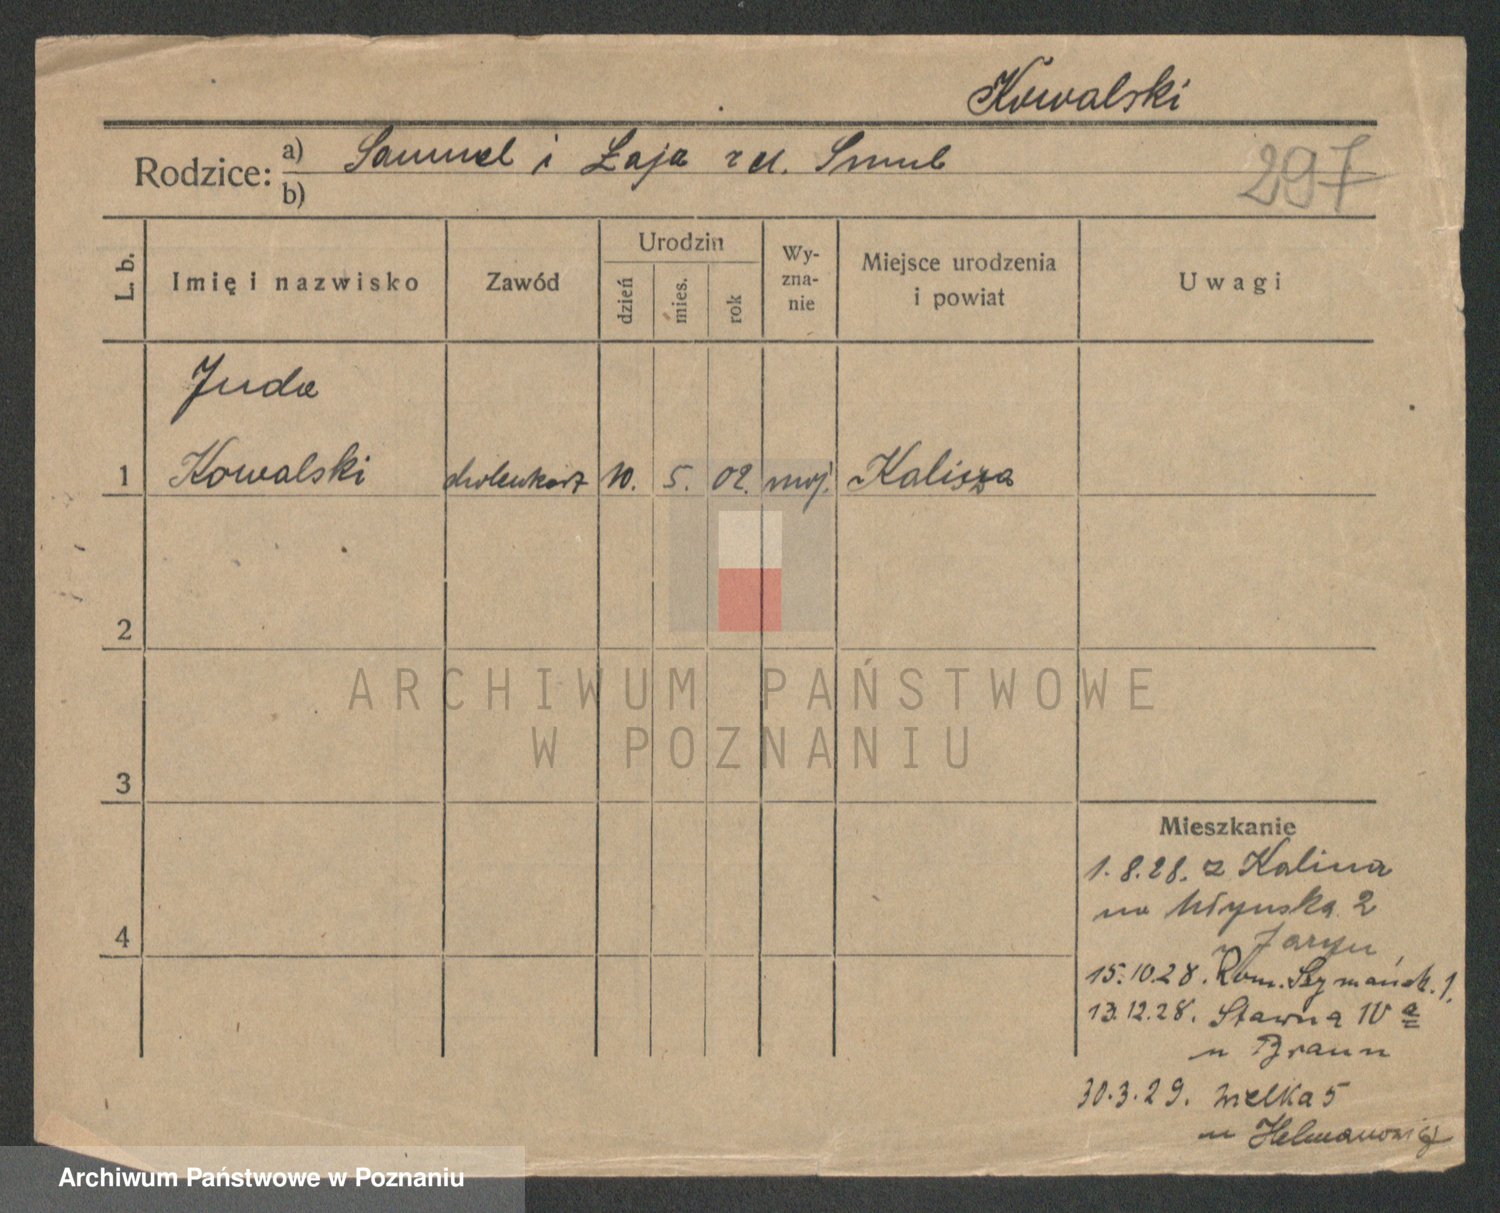 Kowalski
Rodzice: a) Samuel i Łaja rd. Smul
b)
297
L. b.
Imię i nazwisko
Zawód
Urodzin
dzień
mies.
rok
Wy-
zna-
nie
Miejsce urodzenia
i powiat
Uwagi
Juda
1 Kowalski cholewkarz 10. 5. 02. moj. Kalisza
2
3
4
ARCHIWUM PAŃSTWOWE
W POZNANIU
Mieszkanie
1.8.28. z Kalisza
na Młyńska 2
u
15.10.28. Rom. Szymańsk. 1.
13.12.28. Stawna IV a
u Braun
30.3.29. Wielka 5
u Helmanowicz
Archiwum Państwowe w Poznaniu